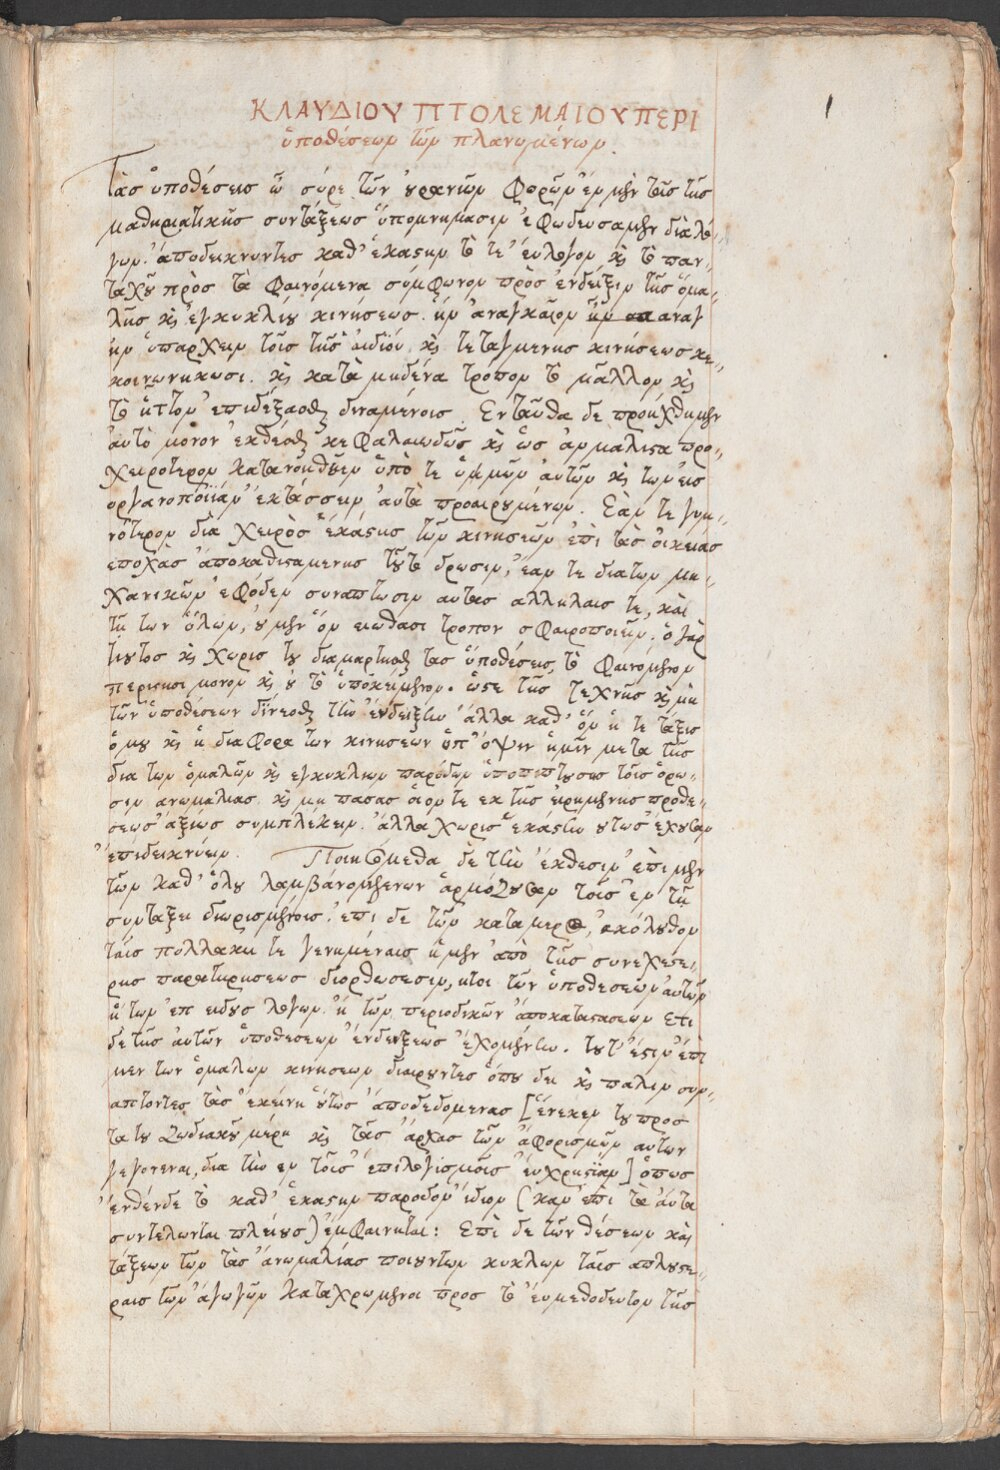 ΚΛΑΥΔΙΟΥ ΠΤΟΛΕΜΑΙΟΥ ΠΕΡΙ
ὑποθέσεων τῶν πλανωμένων.
1
Τὰσ ὑποθέσεισ ὦ σύρε τῶν οὐρανίων φορῶν ἐν μὲν τοῖσ τῆσ
μαθηματικῆσ συντάξεωσ ὑπομνήμασιν ἐφωδεύσαμεν διὰ λό-
γων. ἀποδεικνύντεσ καθ' ἑκάστην τό τε εὔλογον καὶ τὸ παν-
ταχοῦ πρὸσ τὰ φαινόμενα σύμφωνον πρὸσ ἔνδειξιν τῆσ ὁμα-
λῆσ καὶ ἐγκυκλίου κινήσεωσ. ἣν ἀναγκαῖον ἣν αναγ
ην ὑπάρχειν τοῖσ τῆσ ἀιδίου καὶ τεταγμενησ κινήσεωσ κε-
κοινωνηκωσι. καὶ κατὰ μηδένα τρόπον τὸ μᾶλλον καὶ
τὸ ἧττον ἐπιδέξασθαι δυναμένοισ. Ενταῦθα δε προήχθημεν
αὐτὸ μόνον ἐκθέσθαι κεφαλαιωδῶσ καὶ ὡσ ἂν μάλιστα προ-
χειρότερον κατανοηθεῖεν ὑπό τε ἡμῶν αὐτῶν καὶ των εἰσ
οργανοποιίαν ἐκτάσσειν αὐτὰ προαιρουμένων. Εάν τε γυμ-
νότερον διὰ χειρὸσ ἑκάστησ τῶν κινησεῶν ἐπὶ τὰσ οἰκειασ
εποχὰσ ἀποκαθισταμενησ τοῦτο δρωσιν, ἐάν τε δια των μη-
χανικῶν ἐφόδων συναπτωσιν αυτασ αλληλαισ τε, καὶ
τῆ των ὅλων, ου μὴν ὃν ειωθασι τροπον σφαιροποιεῖν. ὁ γὰρ
τοιουτοσ καὶ χωρισ του διαμαρτεῖσθαι τασ ὑποθέσεισ, τὸ φαινόμενον
περιεησι μονον καὶ ου τὸ ὑποκείμενον. ὥστε τῆσ τεχνησ καὶ μη
τῶν ὑποθέσεων γίνεσθαι τὴν ἔνδειξιν ἀλλα καθ' ὃν ἥ τε ταξισ
ὁμου καὶ ἡ διαφορα των κινησεων ὑπ' ὄψιν ἡμῖν μετα τῆσ
δια των ὁμαλῶν καὶ εγκυκλιων παρόδων ὑποπιπτουσησ τοῖσ ὁρω-
σιν ανωμαλιασ. καὶ μη πασασ οἷον τε εκ τῆσ εἰρημενησ προθε-
σεωσ ἀξίωσ συμπλέκειν. ἀλλὰ χωρισ ἑκάστην ουτωσ ἔχουσαν
ἐπιδεικνύειν. Ποιησόμεθα δὲ τὴν ἔκθεσιν ἐπὶ μὲν
τῶν καθ' ὅλου λαμβανομενων ἁρμόζουσαν τοῖσ ἐν τῆ
συνταξει διωρισμένοισ. ἐπὶ δε τῶν καταμερος, ακόλουθον
ταῖσ πολλαχῆ τε γενημέναισ ἡμῖν ἀπὸ τῆσ συνεχεστε-
ρησ παρατηρησεωσ διορθωσεσιν, ητοι τῶν ὑποθεσεῶν αὐτῶν
ἢ των ἐπ ειδουσ λόγων. ἢ τῶν περιοδικῶν ἀποκαταστασεων ετι
δε τῆσ αὐτῶν ὑποθεσεων ἐνδείξεωσ ἐχομένην. τουτ' ἔστιν ἐπὶ
μεν των ὁμαλων κινησεων διαιρουντεσ ὅπου δει καὶ παλιν συν-
απτοντεσ τὰσ ἐκείνη οὕτωσ ἀποδεδομενασ [ἕνεκεν του προσ
τα του ζωδιακοῦ μέρη καὶ τὰσ ἀρχασ τῶν ἀφορισμῶν αυτων
γεγονεναι, δια τὴν εν τοῖσ ἐπιλογισμοῖσ ἐυχρηστίαν] ὅπωσ
ἐνθένδε τὸ καθ' ἑκάστην παροδον ἴδιον (κἂν ἐπὶ τὰ ἀυτὰ
συντελωνται πλείουσ) ἐμφαινηται: Επὶ δε τῶν θέσεων καὶ
τάξεων τῶν τὰσ ἀνωμαλίασ ποιουντων κυκλων ταῖσ απλουστε-
ραισ τῶν ἀγωγῶν καταχρωμενοι προσ τὸ ἐυμεθοδευτον τῆσ